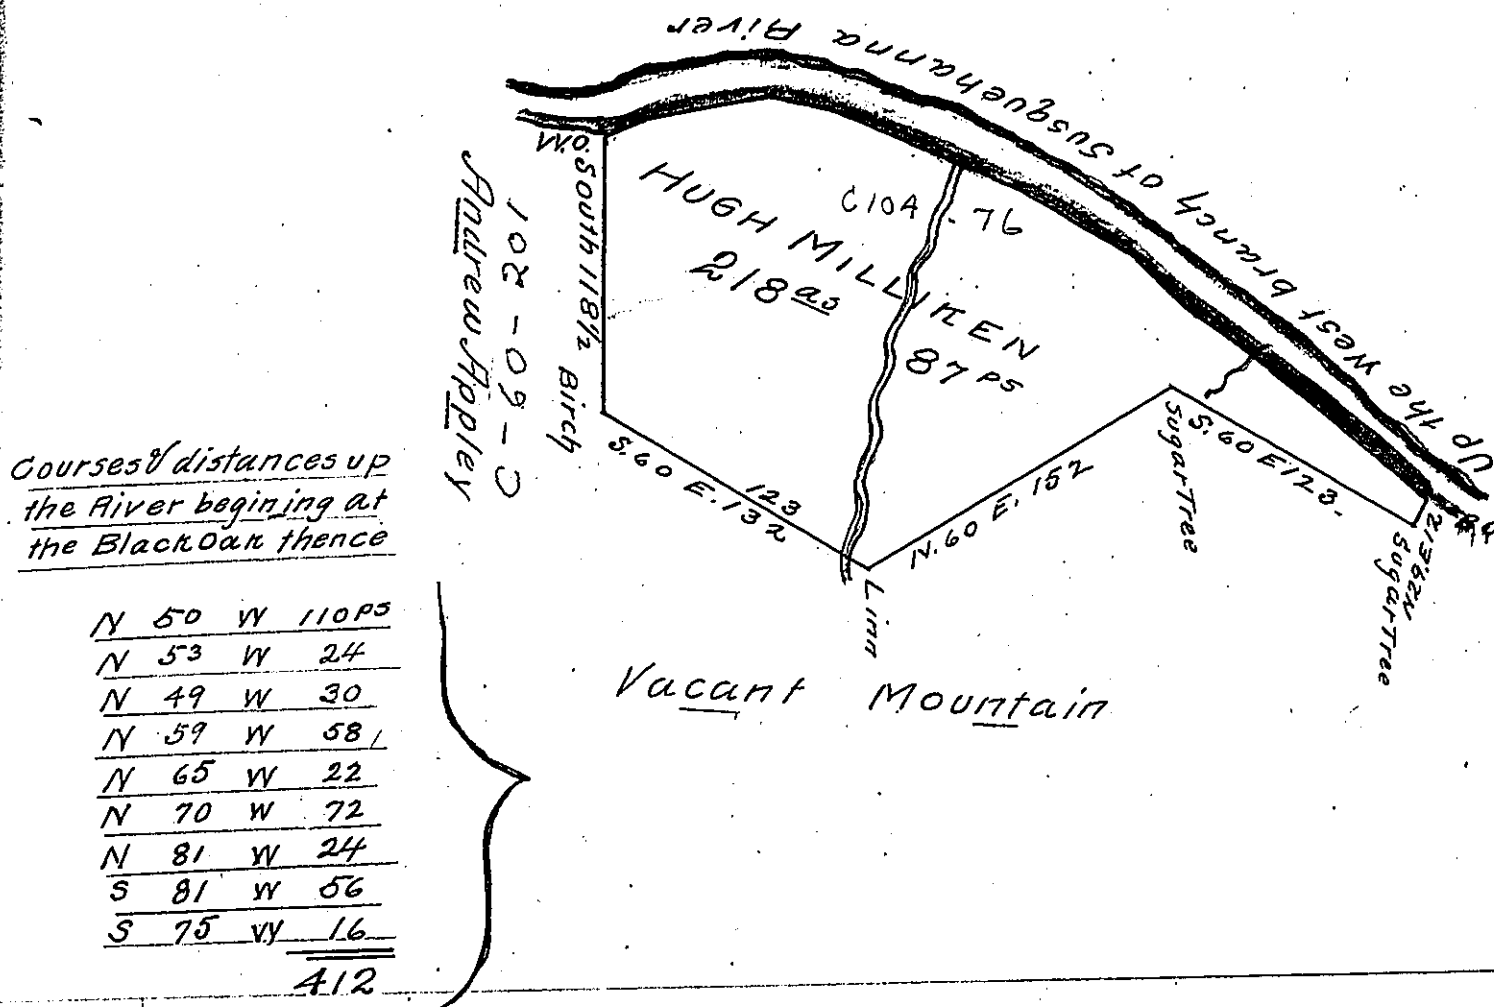 Up the West branch of Susquehanna River
W.O.
South 118½
Birch
Andrew Apple​y
HUGH MILLIKEN
218 as
87 ps
C104 . 76
S. 60 E. 132
123
Linn
N. 60 E. 152
Sugar Tree
S. 60 E 123.
Sugar Tree
Vacant Mountain
Courses & distances up
the River begining at
the Black Oak thence
N 50 W 110 ps
N 53 W 24
N 49 W 30
N 59 W 58
N 65 W 22
N 70 W 72
N 81 W 24
S 81 W 56
S 75 W 16
412